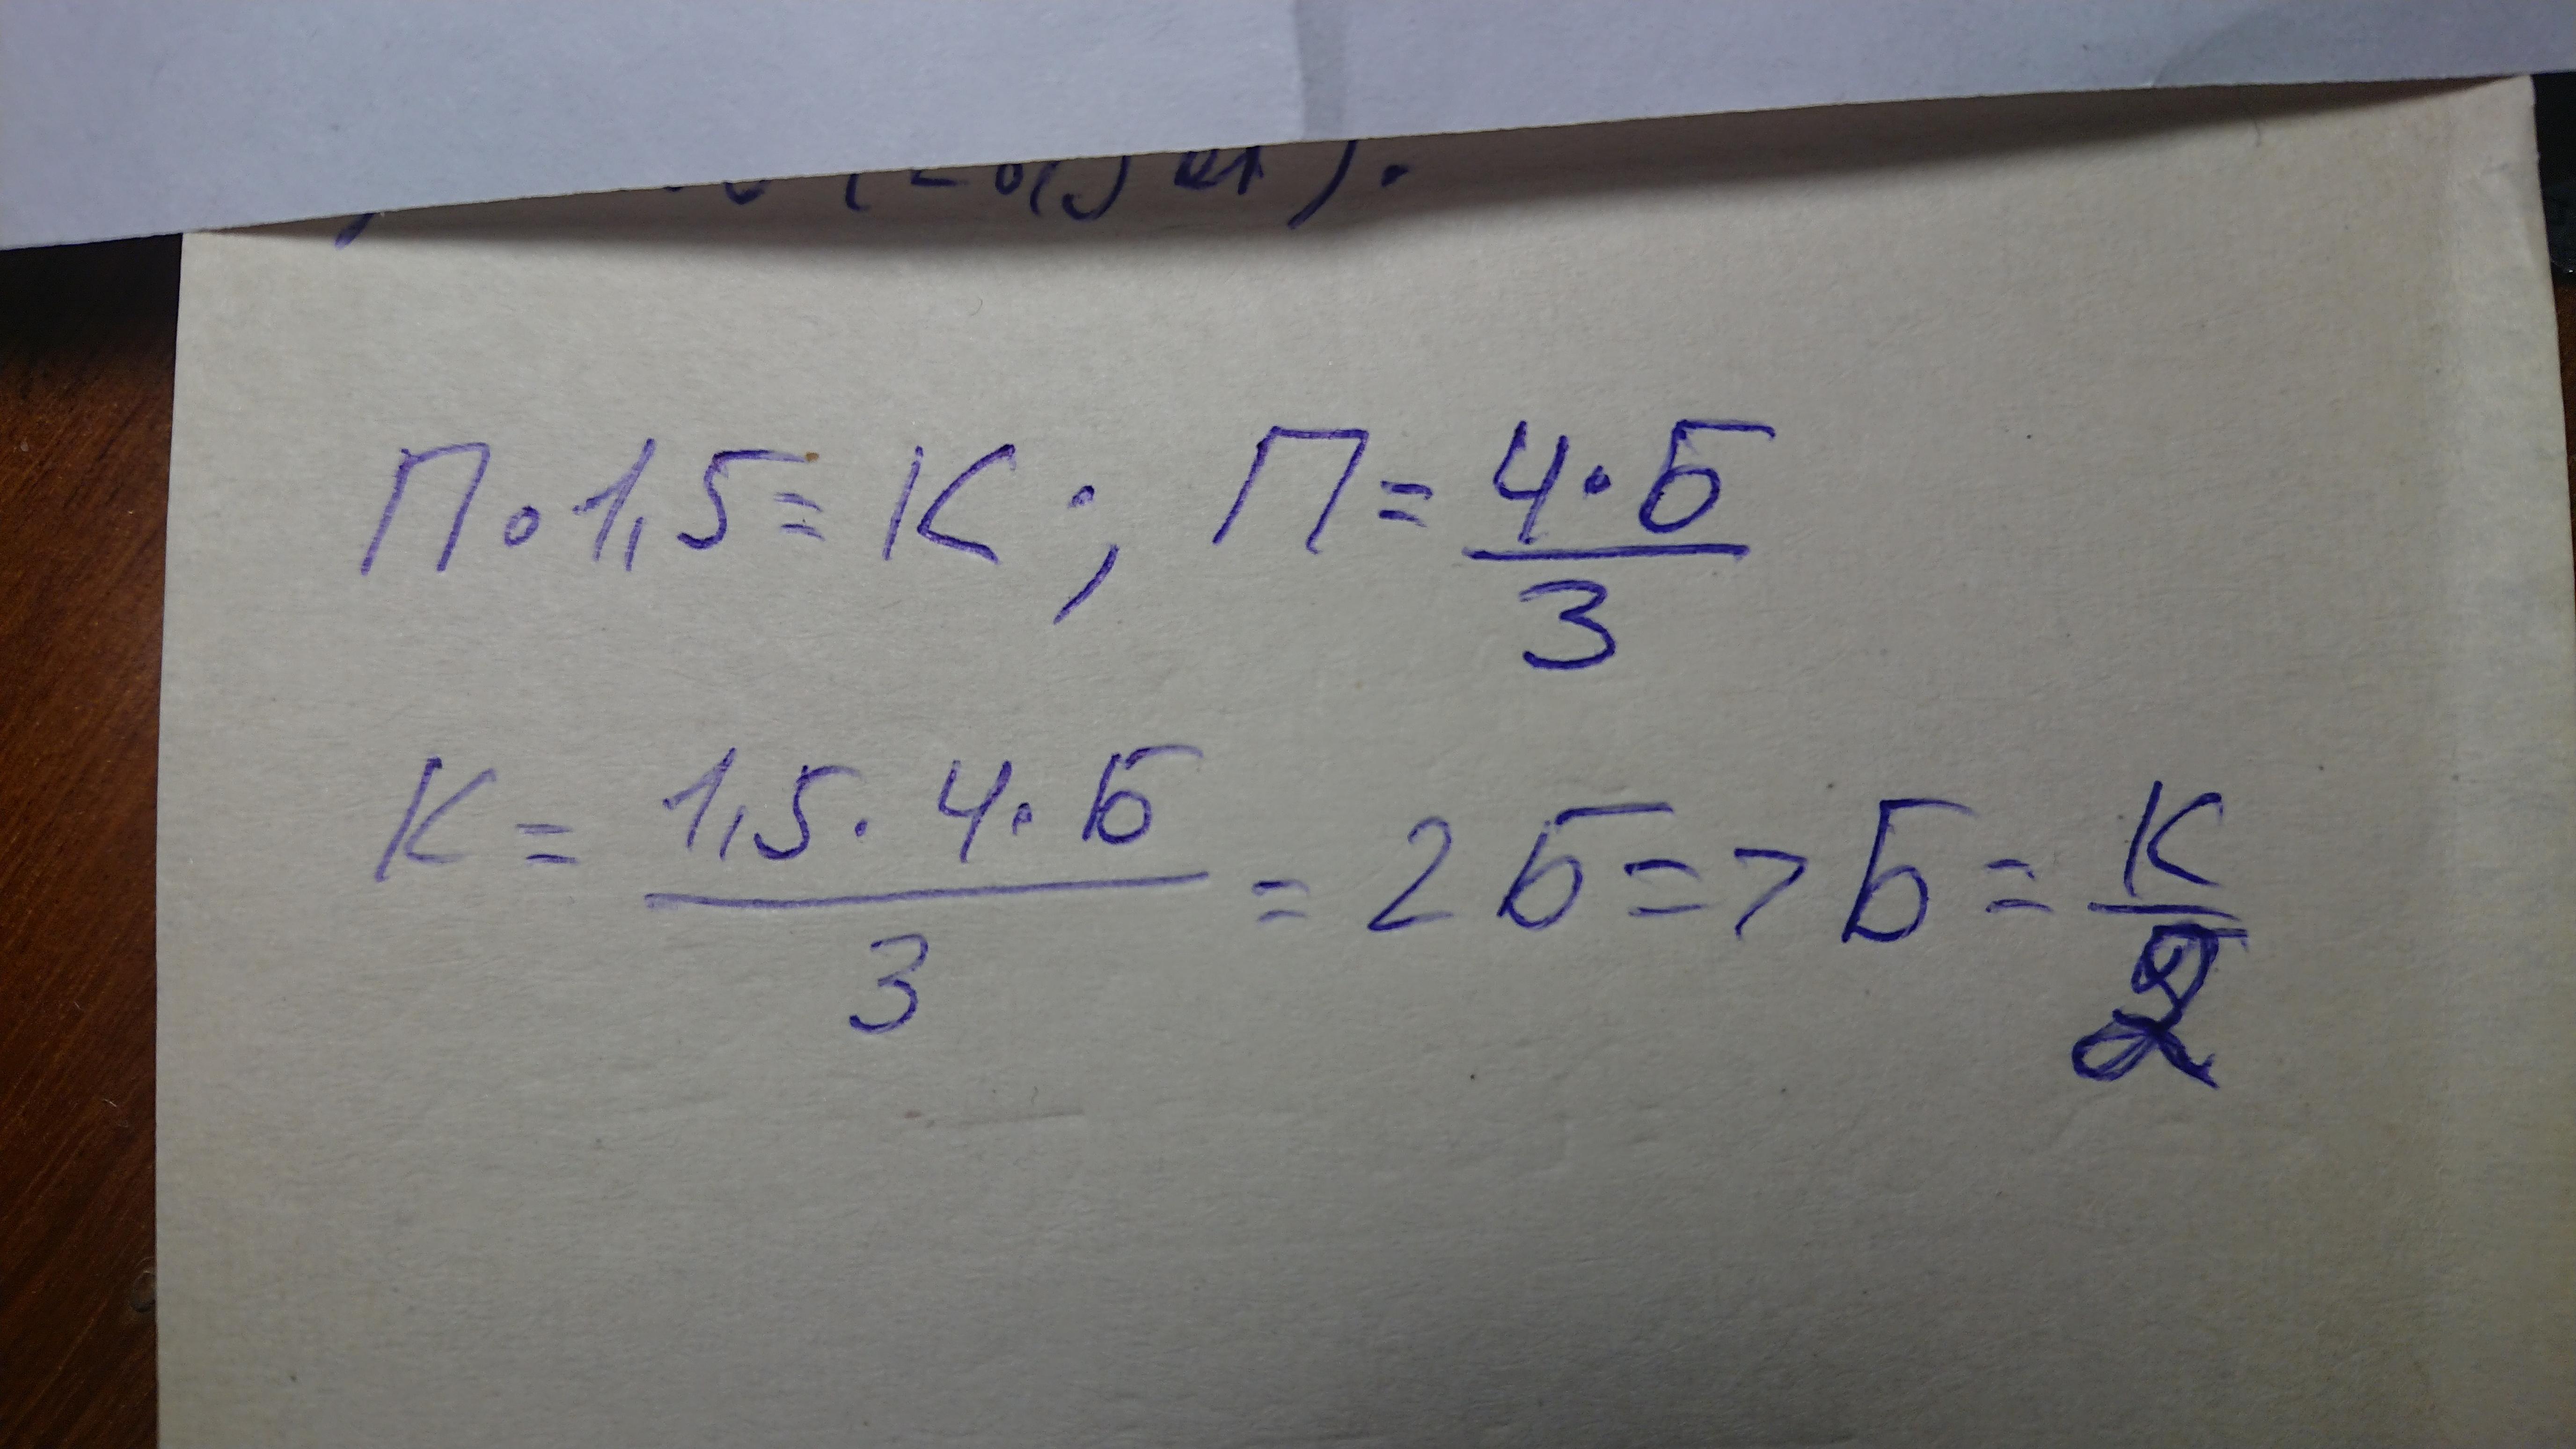 П·1,5=К; П=4·Б/3
К=1,5·4·Б/3=2Б=>Б=К/2